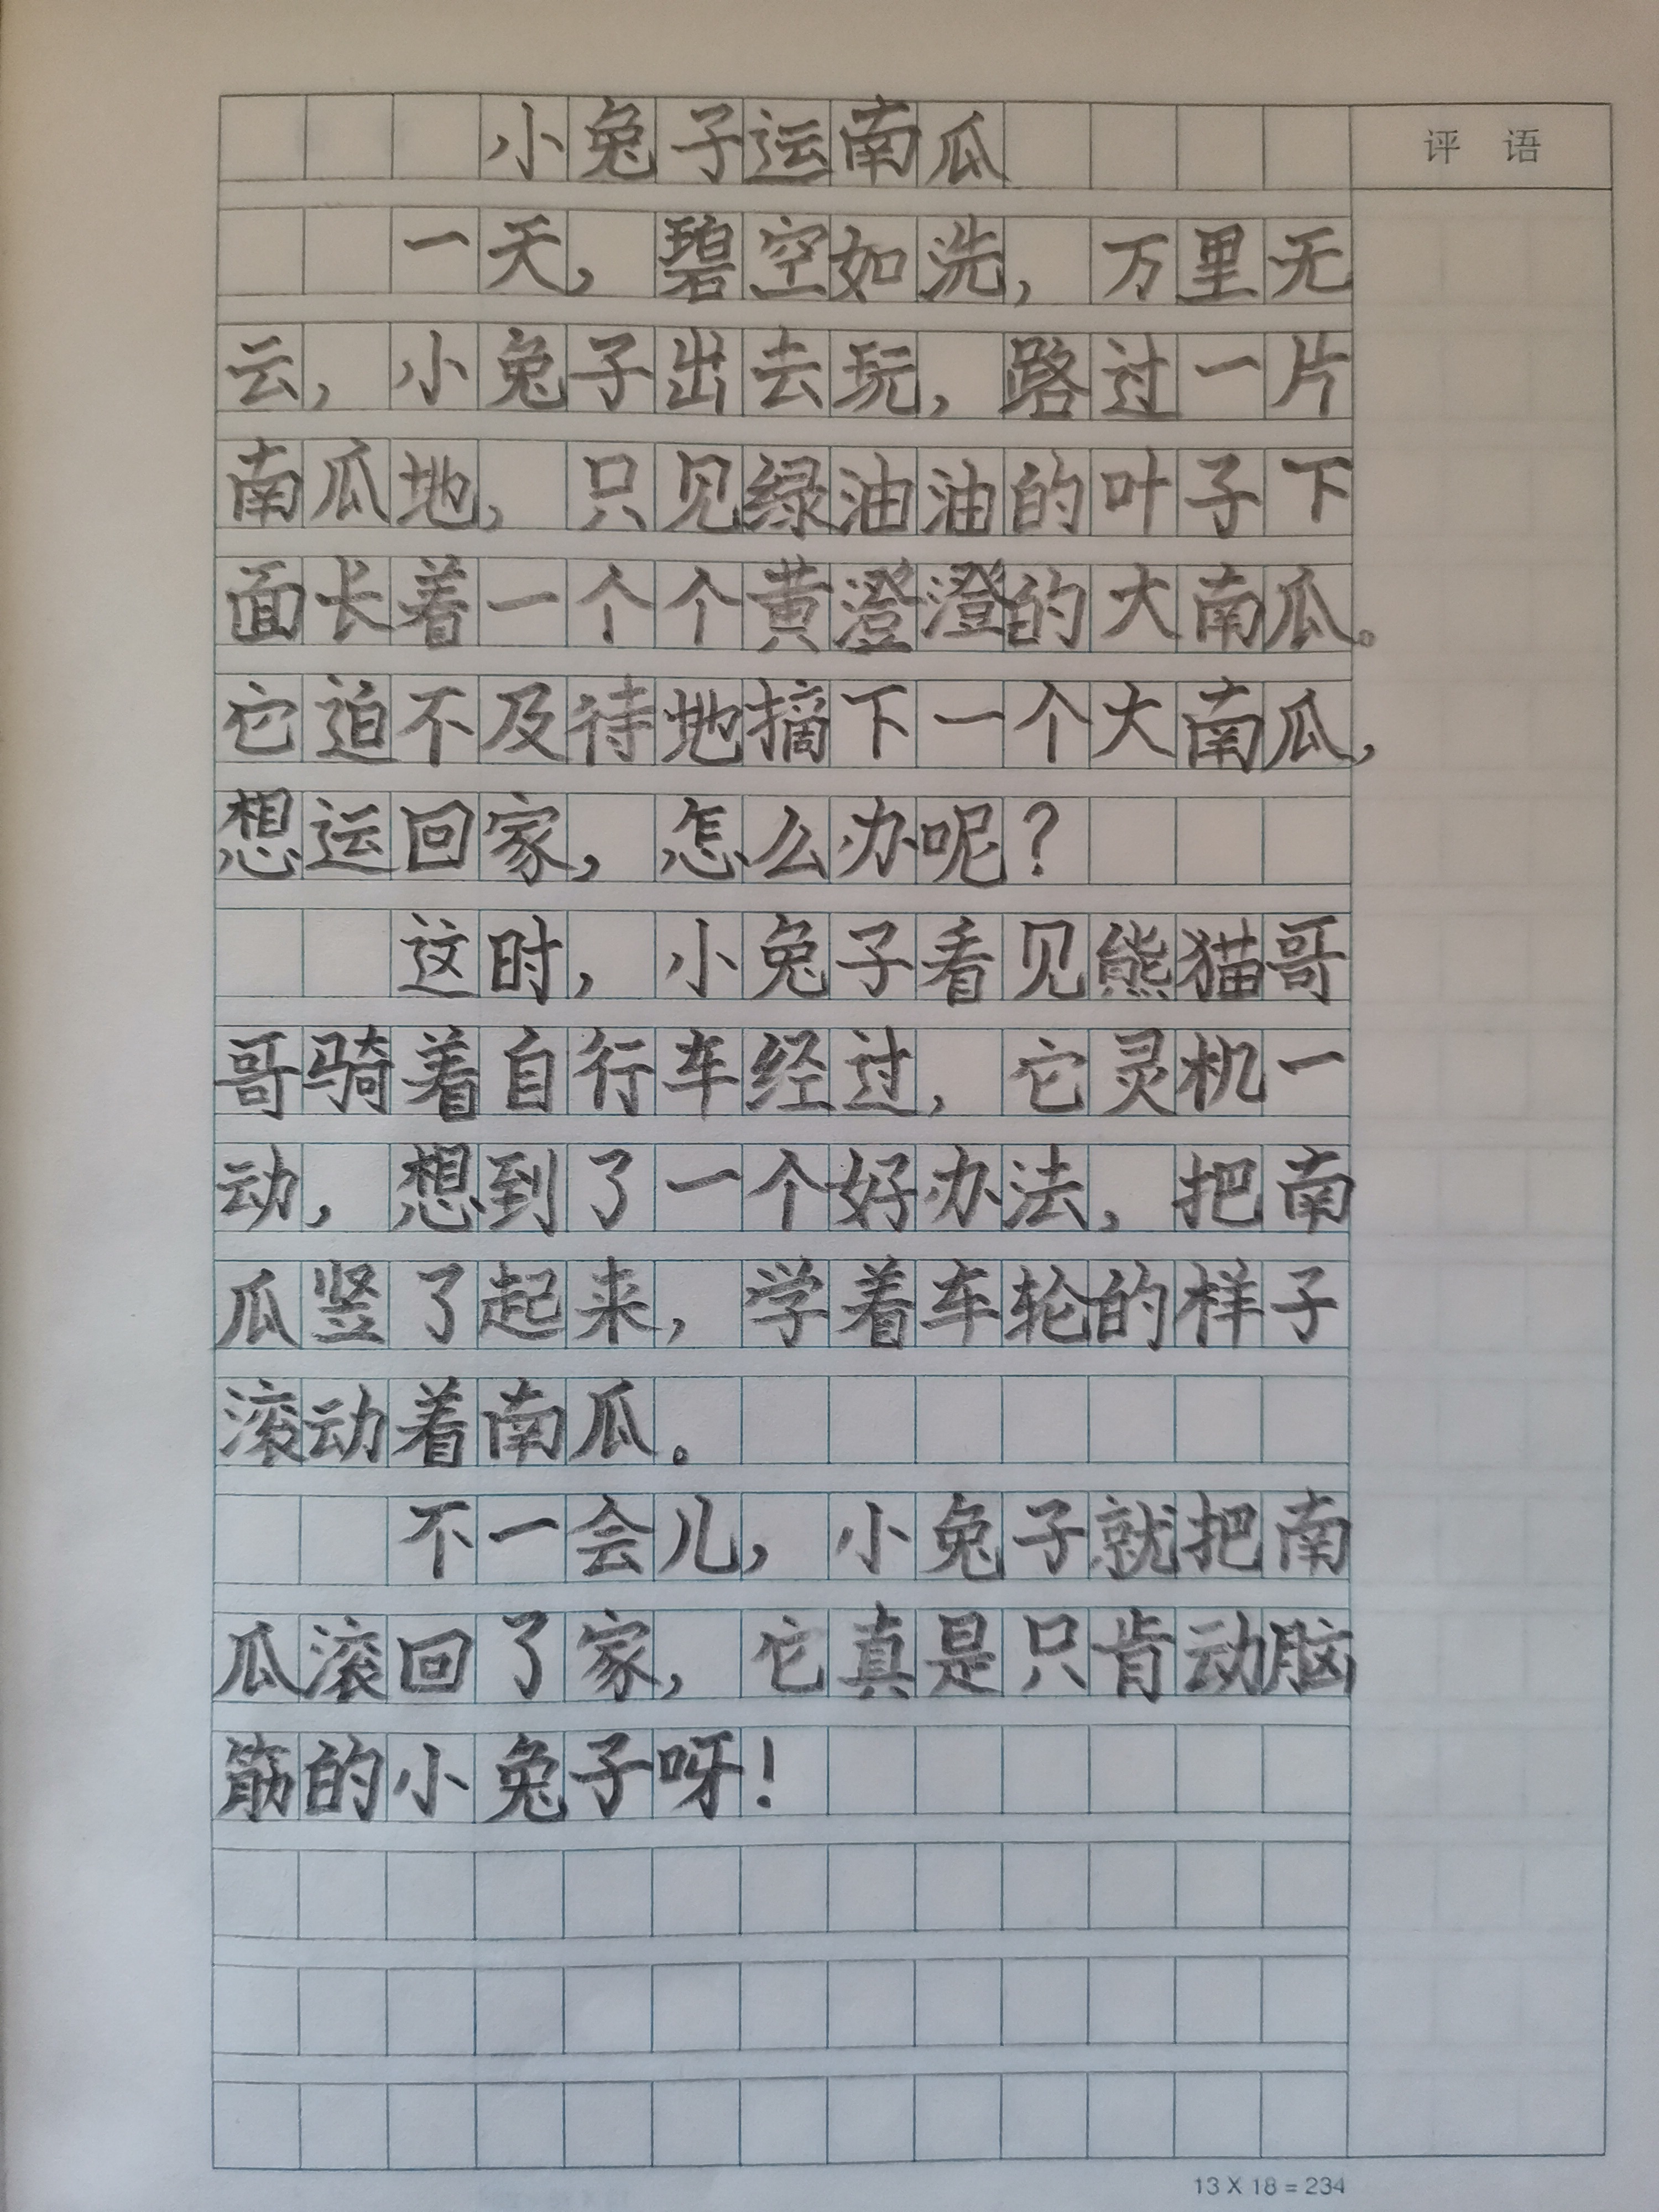 小兔子运南瓜
评 语
一天，碧空如洗，万里无
云，小兔子出去玩，路过一片
南瓜地，只见绿油油的叶子下
面长着一个个黄澄澄的大南瓜。
它迫不及待地摘下一个大南瓜，
想运回家，怎么办呢？
这时，小兔子看见熊猫哥
哥骑着自行车经过，它灵机一
动，想到了一个好办法，把南
瓜竖了起来，学着车轮的样子
滚动着南瓜。
不一会儿，小兔子就把南
瓜滚回了家，它真是只肯动脑
筋的小兔子呀！
13 X 18 = 234